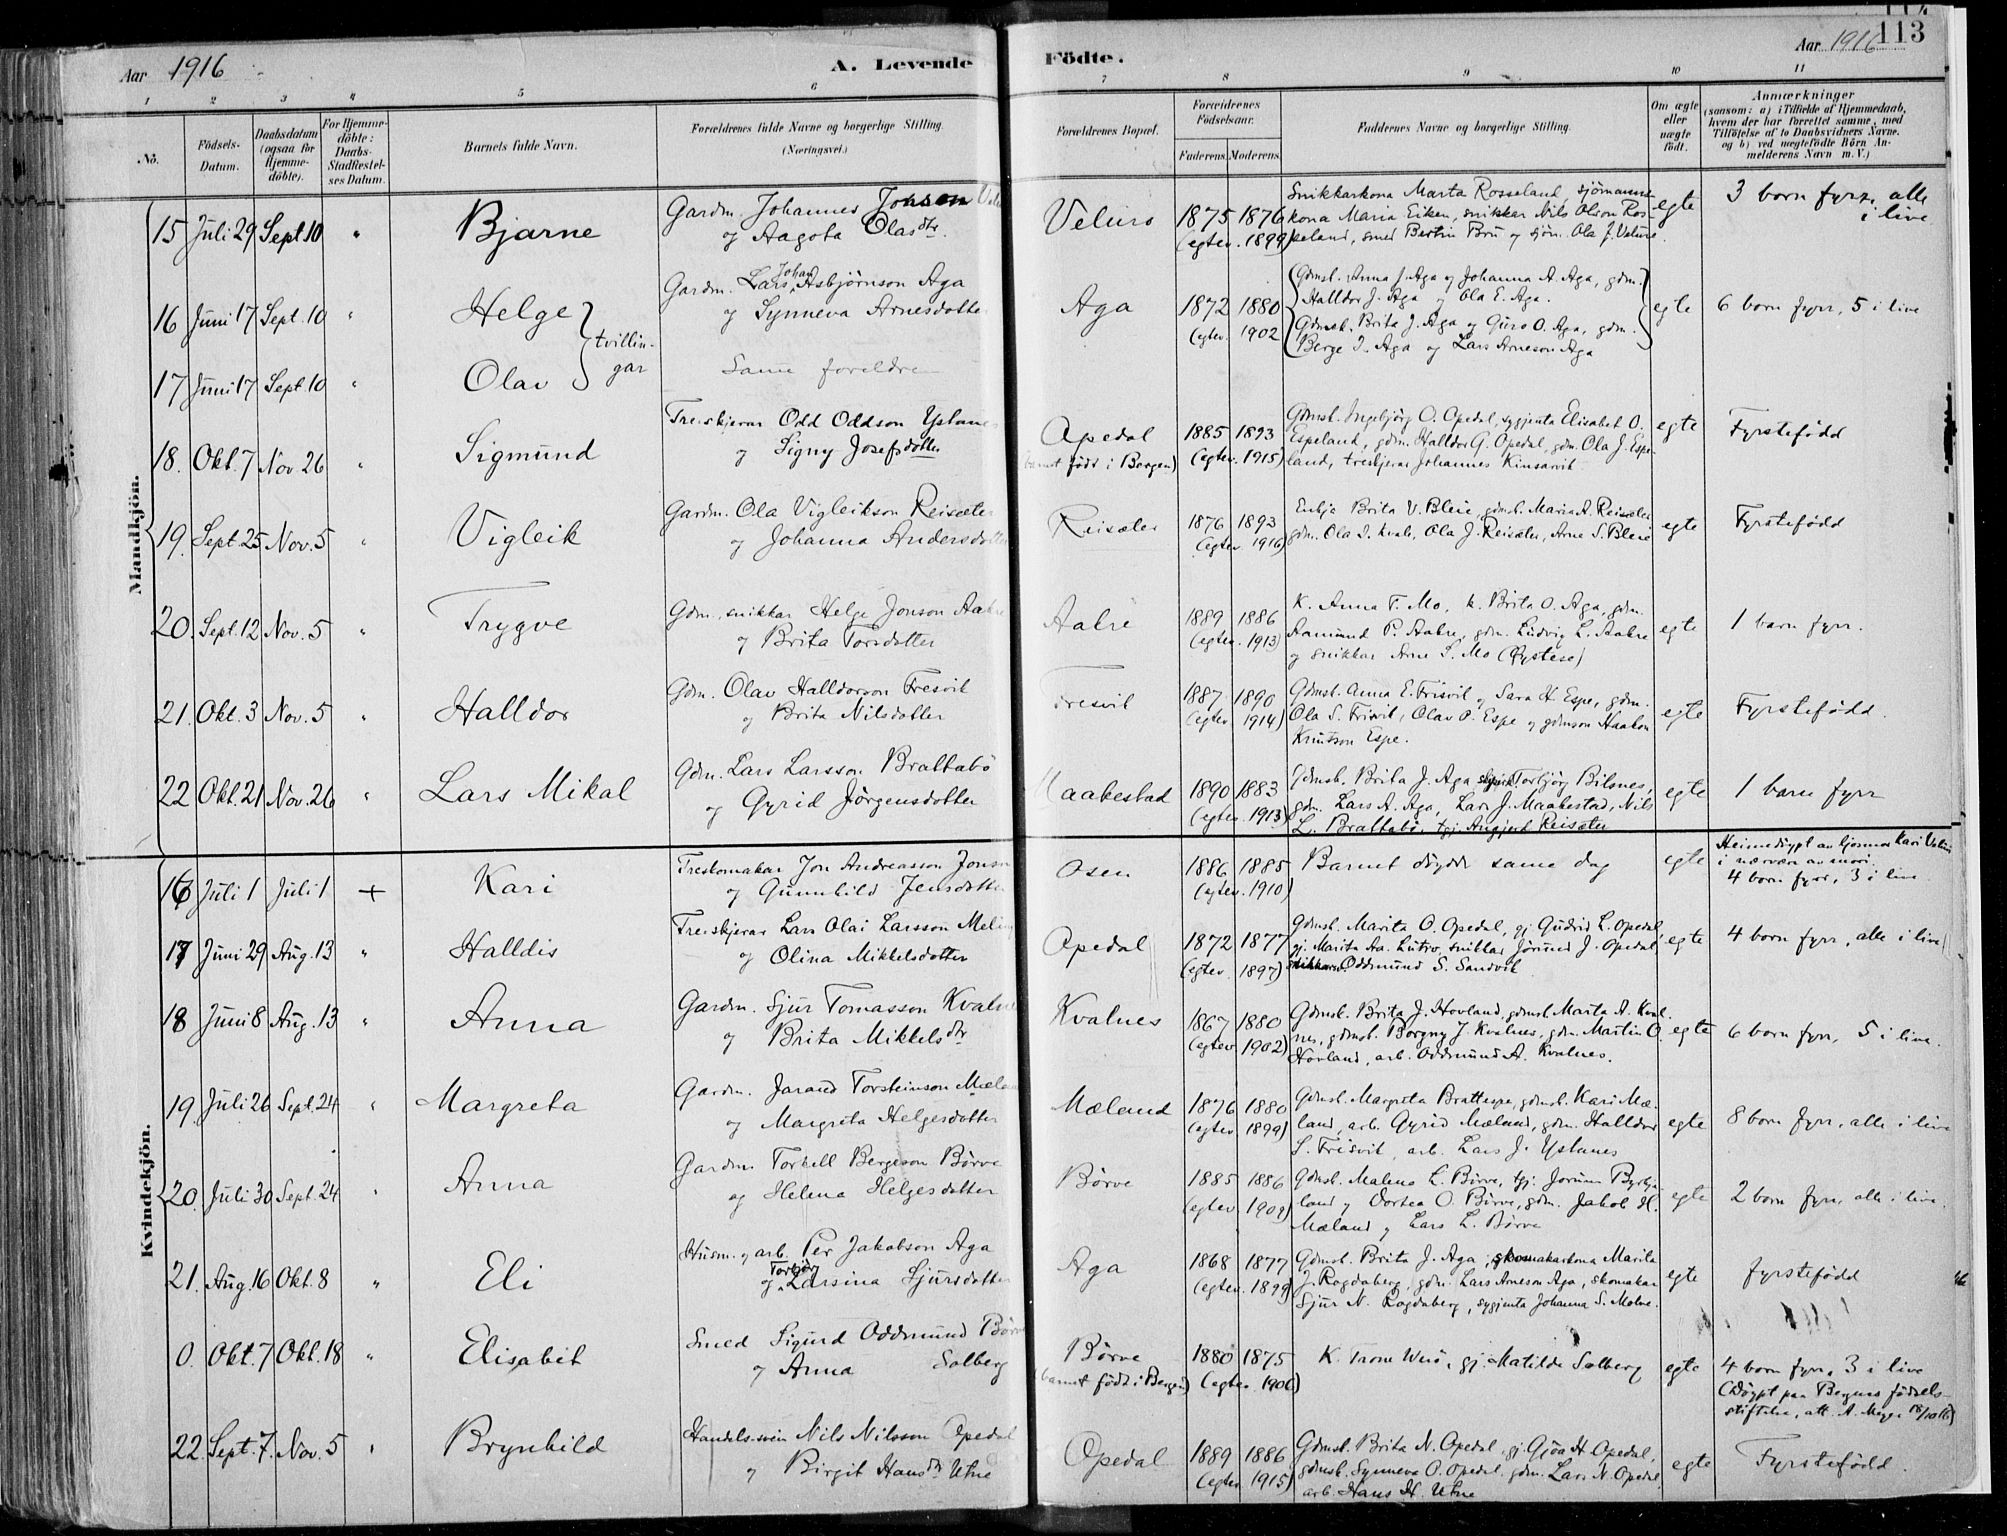 113
Aar 1916
A. Levende Födte.
Aar 1916
1 2 3 4 5 6 7 8 9 10 11
No.
Födsels-Datum.
Daabsdatum (ogsaa for Hjemmedöbte).
For Hjemmedöbte: Daabs-Stadfæstelses Datum.
Barnets fulde Navn.
Forældrenes fulde Navne og borgerlige Stilling. (Næringsvei.)
Forældrenes Bopæl.
Forældrenes Födselsaar.
Faderens. Moderens.
Faddernes Navne og borgerlige Stilling.
Om ægte eller uægte födt.
Anmærkninger
(saasom: a) i Tilfælde af Hjemmedaab, hvem der har forrettet samme, med Tilföielse af to Daabsvidners Navne. og b) ved uægtefödte Börn Anmelderens Navn m. V.)
Mandkjön.
15 Juli 29 Sept. 10 " Bjarne
Gardm. Johannes Jonson
og Aagota Olasdtr.
Velure 1875 1876
(egtev. 1899)
Snikkarkona Marta Rosseland, sjömanns-
kona Maria Eiken, snikkar Nils Olson Ros-
seland, smed Bertin Bru og sjöm. Ola J. Velure.
egte
3 born fyrr, alle
i live
16 Juni 17 Sept. 10 " Helge
Gardm. Lars Johan Asbjørnson Aga
og Synneva Arnesdotter
Aga 1872 1880
(egtev. 1902
Gdmsk. Anna J. Aga og Johanna A. Aga, gdm.
Halldor J. Aga og Ola E. Aga.
Gdmsk. Brita J. Aga og Guro O. Aga, gdm.
Berge I. Aga og Lars Arneson Aga
egte
6 born fyrr, 5 i live
tvillin-
gar
17 Juni 17 Sept. 10 " Olav
Same foreldre
18. Okt. 7 Nov 26 " Sigmund
Treskjerar Odd Oddson Ystanes
og Signy Josefsdotter
Opedal
(barnet född i Bergen)
1885 1893
(egtev. 1915)
Gdmsk. Ingebjörg O. Opedal, sygjenta Elisabet O.
Espeland, gdm. Halldor G. Opedal, gdm. Ola J. Espe-
land, treskjerar Johannes Kinsarvik
egte
Fyrstefödd
19. Sept. 25 Nov. 5 " Vigleik
Gardm. Ola Vigleikson Reisæter
og Johanna Andersdotter
Reisæter 1876 1893
(egtev. 1916)
Enkja Brita V. Bleie, gdmsk. Maria A. Reisæter
gdm. Ola I. Kvale, Ola J. Reisæter, Arne S. Bleie
egte
Fyrstefödd
20. Sept. 12 Nov. 5 " Trygve
Gdm., snikkar Helge Jonson Aakre
og Brita Torsdotter
Aakre 1889 1886
(egtev. 1913)
K. Anna T. Mo, k. Brita O. Aga, gdm.
Aamund P. Aakre, gdm. Ludvig L. Aakre
og snikkar Arne S. Mo (Øystese)
egte
1 barn fyrr.
21. Okt. 3 Nov. 5 " Halldor
Gdm. Olav Halldorson Tresvik
og Brita Nilsdotter
Tresvik 1887 1890
(egtev. 1914)
Gdmsk. Anna E. Frisvik og Sara H. Espe, gdm.
Ola S. Frisvik, Olav O. Espe og gdmson Haakon
Knutson Espe.
egte
Fyrstefödd.
22 Okt. 21 Nov. 26 " Lars Mikal
Gdm. Lars Larsson Brattabö
og Gyrid Jörgensdotter
Maakestad 1890 1883
(egtev. 1913)
Gdmsk. Brita J. Aga Torbjörg Bilsnes,
gdm. Lars A. Aga, Lars J. Maakestad, Nils
L. Brattabö, tgj. Angjerd Reisæter
egte
1 barn fyrr
Kvindekjön.
16 Juli 1 Juli 1 + Kari
Treskomakar Jon Andreasson Jonsn
og Gunnhild Jensdotter
Osen 1886 1885
(egtev. 1910)
Barnet döydde same dag
egte
Heimedöypt av ljosmor Kari Velure
i nærvære av mori.
4 born fyrr, 3 i live
17 Juni 29 Aug. 13 " Halldis
Treskjerar Lars Olai Larsson Meling
og Olina Mikkelsdotter
Opedal 1872 1877
(egtev. 1897)
Gdmsk. Marita O. Opedal, gj. Gudrid L. Opedal,
gj. Marita Aa. Lutro, snikkar Jørund J. Opedal,
snikkar Oddmund S. Sandvik
egte
4 born fyrr, alle i live
18 Juni 8 Aug. 13 " Anna
Gardm. Sjur Tomasson Kvalnes
og Brita Mikkelsdtr
Kvalnes 1867 1880
(egtev. 1902)
Gdmsk. Brita J. Hovland, gdmsk. Marta A. Kval-
nes, gdmsk. Borgny J. Kvalnes, gdm. Martin O.
Hovland, arb. Oddmund A. Kvalnes.
egte
6 born fyrr, 5 i live.
19. Juli 26 Sept. 24 " Margreta
Gardm. Jarand Torsteinson Mæland
og Margreta Helgesdotter
Mæland 1876 1880
(egtev. 1899)
Gdmsk. Margreta Brattespe, gdmsk. Kari Mæ-
land, arb. Gyrid Mæland, gdm. Halldor
S. Frisvik, arb. Lars J. Ystanes
egte
8 born fyrr, alle i live
20. Juli 30 Sept. 24 " Anna
Gardm. Torkell Bergeson Börve
og Helena Helgesdotter
Börve 1885 1886
(egtev. 1909)
Gdmsk. Malena L. Börve, tgj. Jorunn Byrkje-
land og Dortea O. Börve, gdm. Jakob H.
Mæland og Lars L. Börve
egte
2 born fyrr, alle i live.
21. Aug. 16 Okt. 8 " Eli
Husm. og arb. Per Jakobson Aga
og Torbjör Larsina Sjursdotter
Aga 1868 1877
(egtev. 1899)
Gdmsk. Brita J. Aga, skomakarkona Marita
J. Rogdaberg, gdm. Lars Arneson Aga, skomakar
Sjur N. Rogdaberg, sygjenta Johanna S. Molne.
egte
fyrstefödd
0. Okt. 7 Okt. 18 " Elisabet
Smed Sigurd Oddmund Börve
og Anna Solberg
Börve
(barnet född i Bergen)
1880 1875
(egtev. 1906)
K. Trone Wiis, gj. Matilde Solberg
egte
4 born fyrr, 3 i live
(Döypt paa Bergens födsels-
stiftelse, att. A. Meyer 18/10 16)
22. Sept. 7. Nov. 5 " Brynhild
Handels-svein Nils Nilsson Opedal
og Birgit Hansdtr Utne
Opedal 1889 1886
(egtev. 1915)
Gdmsk. Brita N. Opedal, gj. Gjöa H. Opedal,
gdmsk. Synneva O. Opedal, gdm. Lars N. Opedal
arb. Hans H. Utne
egte
Fyrstefödd.